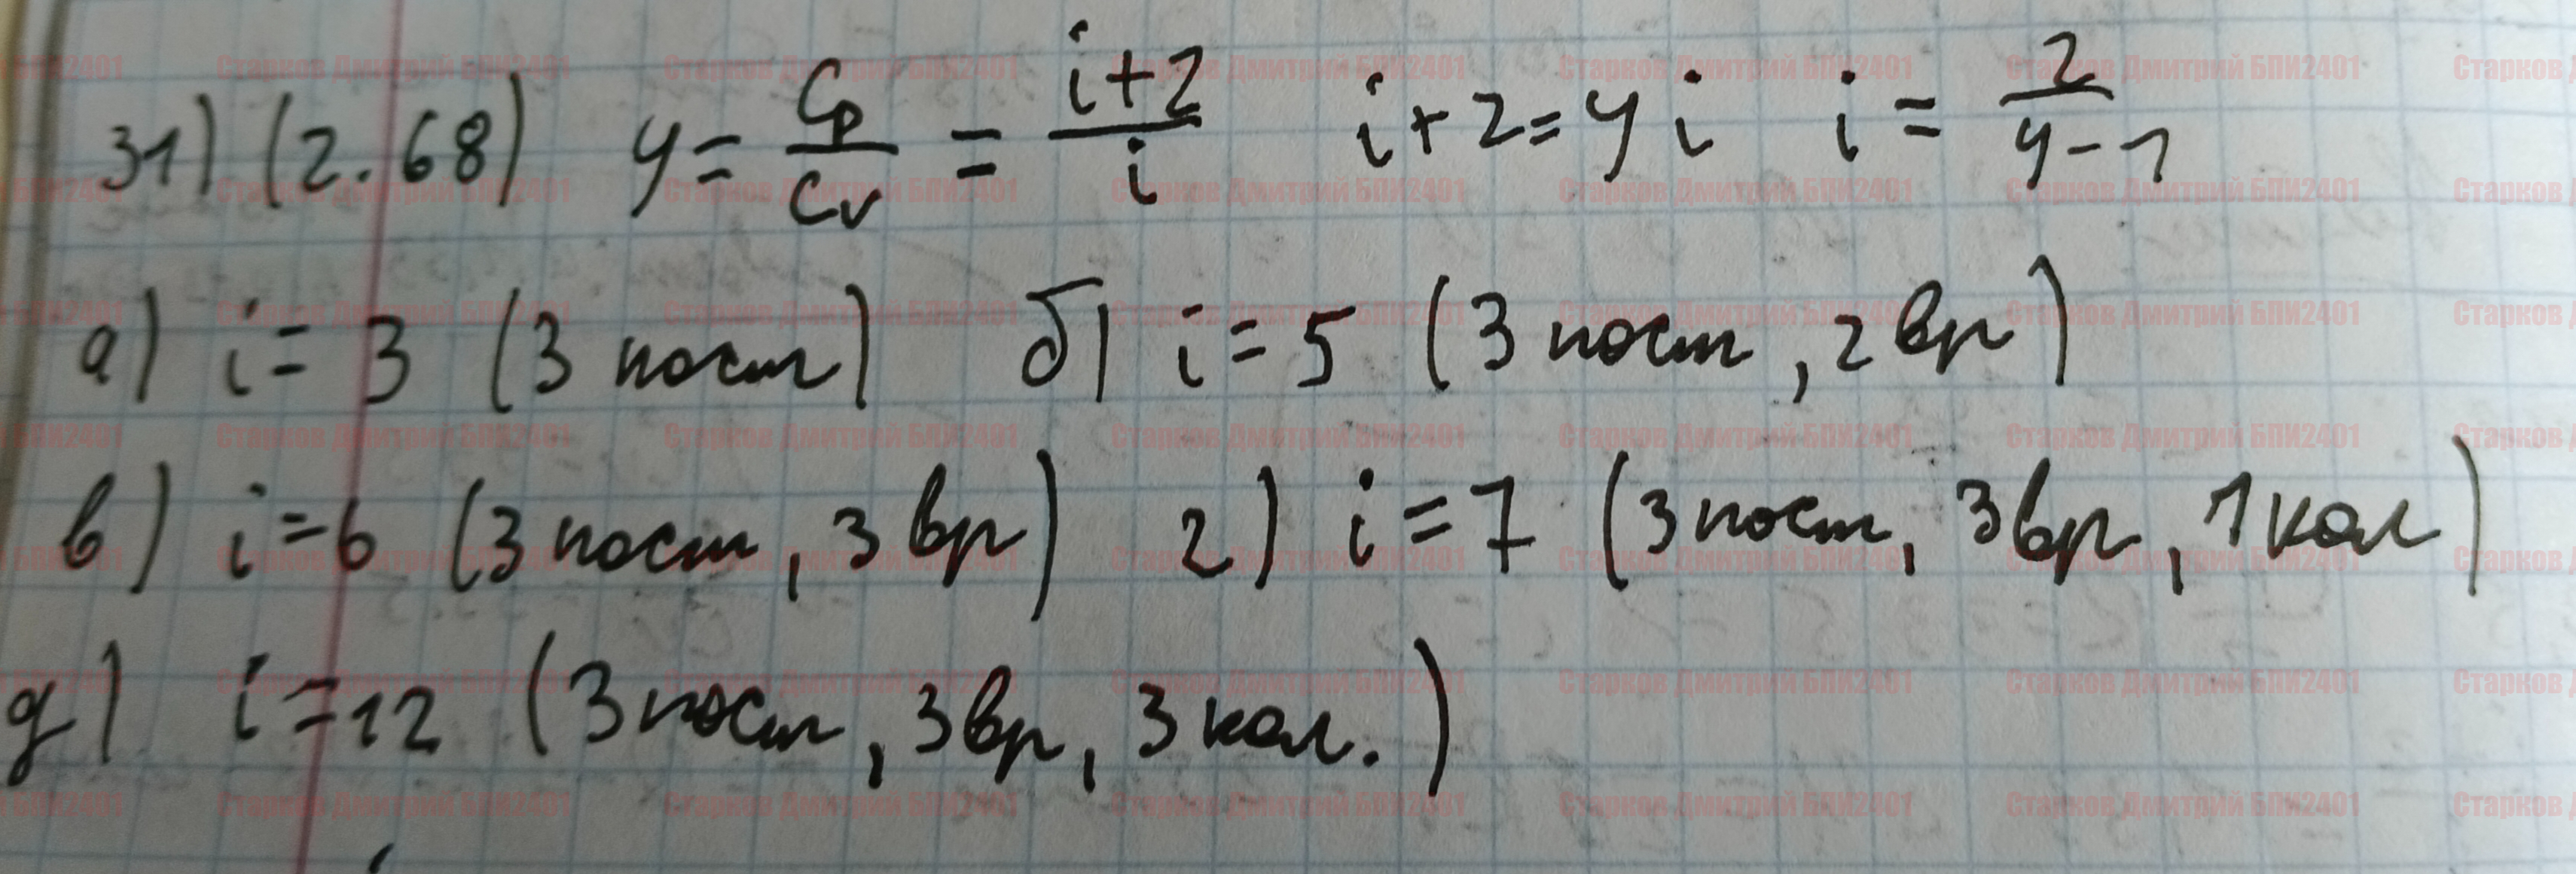 31) (2.68) γ = Cp/Cv = i+2/i i+2=γi i = 2/γ-1
а) i = 3 (3 пост) б) i = 5 (3 пост, 2 вр)
в) i = 6 (3 пост, 3 вр) г) i = 7 (3 пост, 3 вр, 1 кол)
д) i = 12 (3 пост, 3 вр, 3 кол.)
Старков Дмитрий БПИ2401